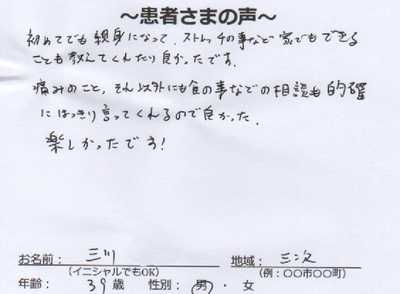 ～患者さまの声～
初めてでも親身になって、ストレッチの事など家でもできる
ことも教えてくれたり良かったです。
痛みのこと、そん以外にも食の事などの相談も的確
にはっきり言ってくれるので良かった。
楽しかったです!
お名前： 三川 地域： 三次
(イニシャルでもOK) (例：〇〇市〇〇町)
年齢： 39歳 性別： 男 ・ 女